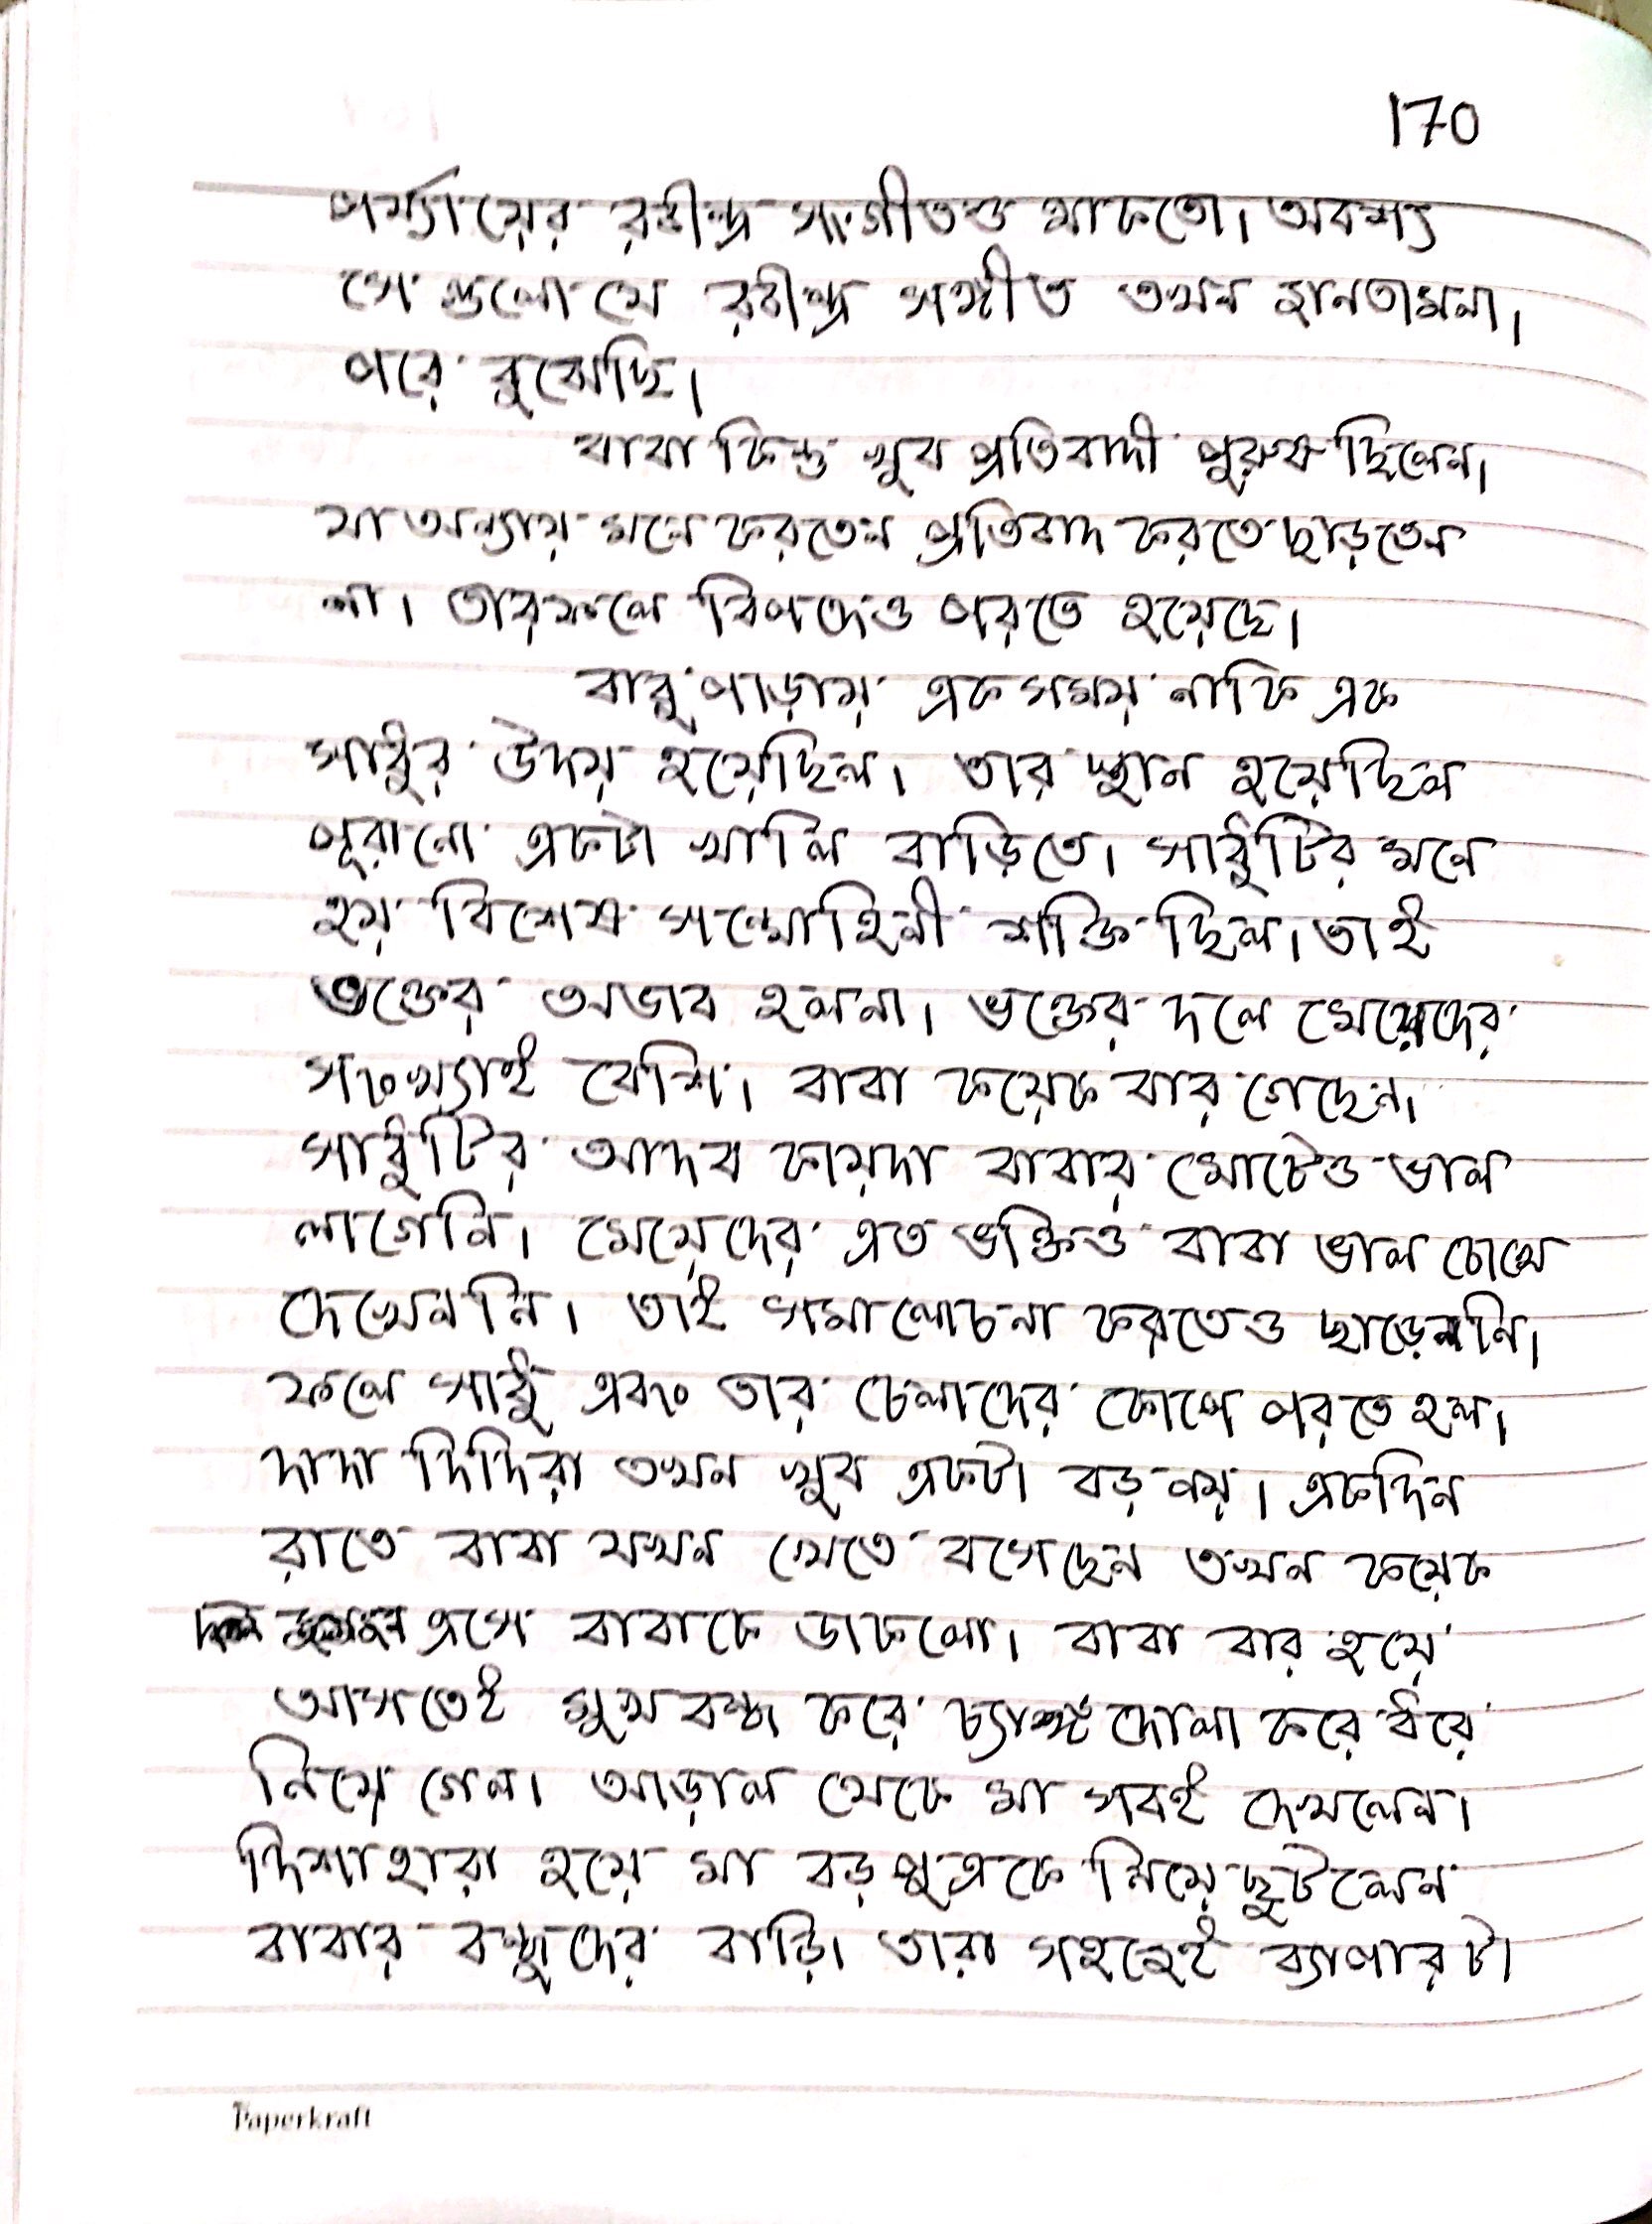 170
পর্য্যায়ের রবীন্দ্র সংগীতও থাকতো। অবশ্য
সে গুলো যে রবীন্দ্র সঙ্গীত তখন জানতামনা।
পরে বুঝেছি।
বাবা কিন্তু খুব প্রতিবাদী পুরুষ ছিলেন।
যা অন্যায় মনে করতেন প্রতিবাদ করতে ছাড়তেন
না। তারফলে বিপদেও পরতে হয়েছে।
বাবু পাড়ায় এক সময় নাকি এক
সাধুর উদয় হয়েছিল। তার স্থান হয়েছিল
পুরানো একটা খালি বাড়িতে। সাধুটির মনে
হয় বিশেষ সন্মোহিনী শক্তি ছিল। তাই
ভক্তের অভাব হলনা। ভক্তের দলে মেয়েদের
সংখ্যাই বেশি। বাবা কয়েক বার গেছেন।
সাধুটির আদব কায়দা বাবার মোটেও ভাল
লাগেনি। মেয়েদের এত ভক্তিও বাবা ভাল চোখে
দেখেননি। তাই সমালোচনা করতেও ছাড়েননি।
ফলে সাধু এবং তার চেলাদের কোপে পরতে হল।
দাদা দিদিরা তখন খুব একটা বড় নয়। একদিন
রাতে বাবা যখন খেতে বসেছেন তখন কয়েক
এসে বাবাকে ডাকলো। বাবা বার হয়ে
আসতেই মুখ বন্ধ করে চ্যাঙ্গদোলা করে ধরে
নিয়ে গেল। আড়াল থেকে মা সবই দেখলেন।
দিশাহারা হয়ে মা বড় পুত্রকে নিয়ে ছুটলেন
বাবার বন্ধুদের বাড়ি। তারা সহজেই ব্যাপারটা
Paperkraft